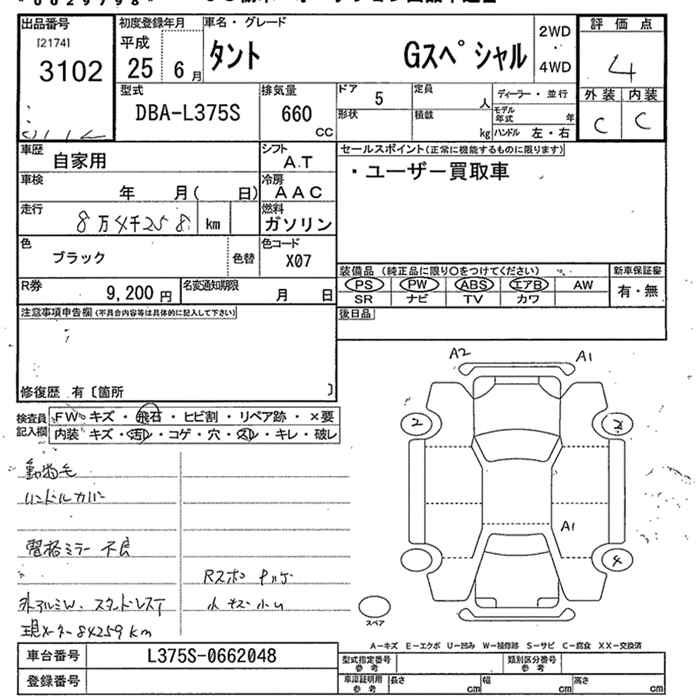 出品番号
[2174]
3102
初度登録年月
平成
25 6月
車名・グレード
タント Gスペシャル
2WD
4WD
評価点
4
外装 内装
C C
型式
DBA-L375S
排気量
660
CC
ドア
5
形状
定員
人
積載
kg
ディーラー・並行
モデル年式
年
ハンドル 左・右
車歴
自家用
シフト
A.T
車検
年 月( 日)
冷房
AAC
走行
8万4千258 km
燃料
ガソリン
色
ブラック
色替
色コード
X07
R券
9,200円
名変通知期限
月 日
セールスポイント(正常に機能するものに限ります)
・ユーザー買取車
装備品 (純正品に限り○をつけてください)
新車保証書
PS PW ABS エアB AW
有・無
SR ナビ TV カワ
後日品
注意事項申告欄(不具合内容等は具体的に記入して下さい)
修復歴 有〔箇所 〕
検査員
記入欄
FW キズ・飛石・ヒビ割・リペア跡・×要
内装 キズ・汚レ・コゲ・穴・スレ・キレ・破レ
動物毛
ハンドルカバー
習格ミラー 不良
Rスポ
外アルミW. スタッドレスT
現メーター84259km
A2 A1
2
A1
4
スペア
A-キズ E-エクボ U-凹み W-補修跡 S-サビ C-腐食 XX-交換済
車台番号
L375S-0662048
登録番号
型式指定番号
参考
類別区分番号
参考
車庫証明用
参考
長さ
cm
幅
cm
高さ
cm